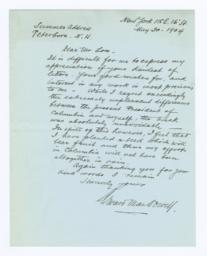 New York 15 E. 16 St
May 30 - 1904
Summer Address
Peterboro - N. H.
Dear Mr.
It is difficult for me to express my
appreciation of your kindest of
letters. Your good wishes for and
interest in my work is most precious
to me - While I regret exceedingly
the extremely unpleasant difference
between the present President of
Columbia and myself, the break
was absolutely unavoidable -
In spite of this however, I feel that
I have planted a seed which will
bear fruit and thus my efforts
in Columbia will not have been
altogether in vain.
Again thanking you for your
kind words I remain
Sincerely yours
Edward MacDowell.